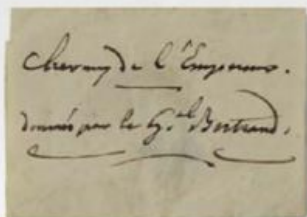 Cheveux de l'Empereur.
donnés par le G.al Bertrand.